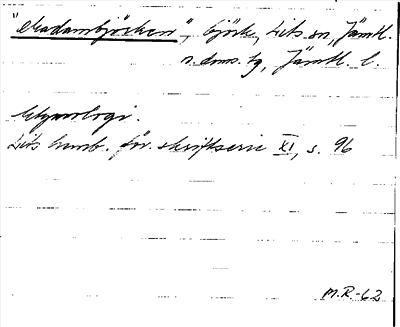 "Madambjörken", björk, Lits sn, Jämtl.
n. doms. tg, Jämtl. l.
Etymologi.
Lits hemb. för. skriftserie XI, s. 96
M.R.-62